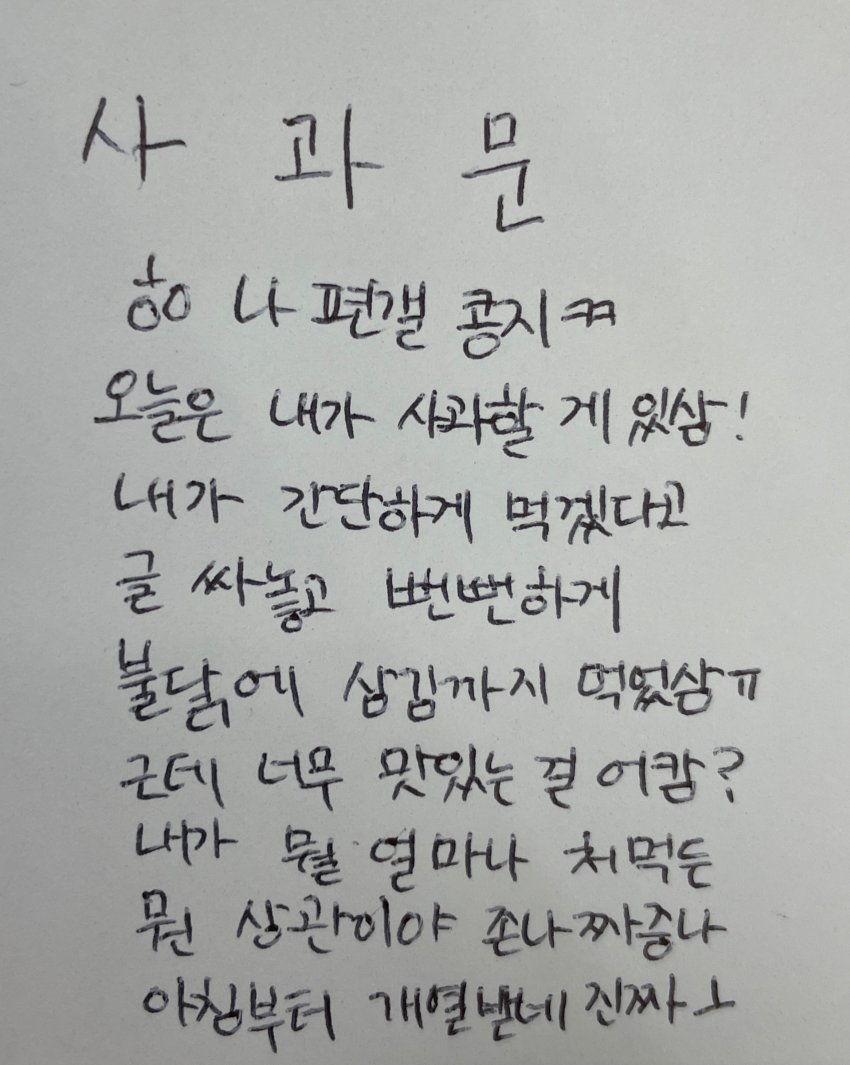 사 과 문
항 나 편갤 콩지ㅋㅋ
오늘은 내가 사과할 게 있삼!
내가 간단하게 먹겠다고
글 싸놓고 뻔뻔하게
불닭에 삼김까지 먹었삼ㅠ
근데 너무 맛있는 걸 어캄?
내가 뭘 얼마나 처먹든
뭔 상관이야 존나짜증나
아침부터 개열받네 진짜ㅗ